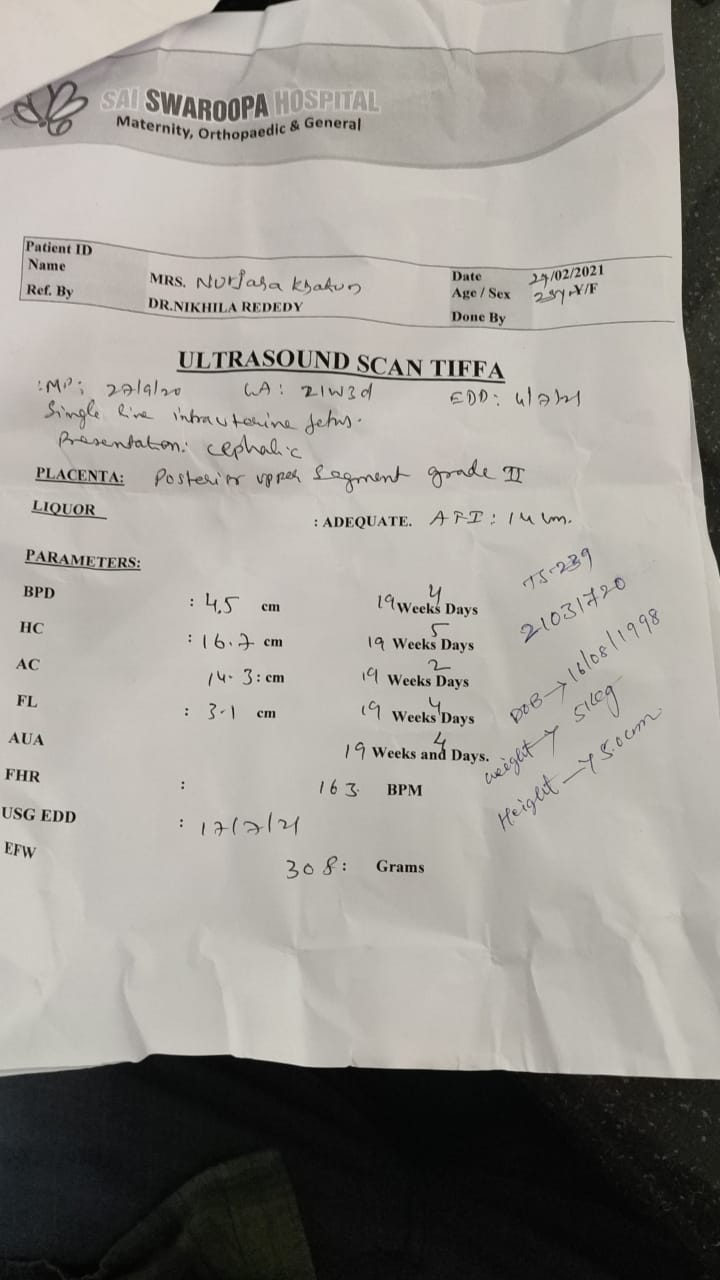 SAI SWAROOPA HOSPITAL
Maternity, Orthopaedic & General
Patient ID
Name MRS. Nurjaha Khatun
Ref. By DR.NIKHILA REDEDY
Date 24/02/2021
Age / Sex 23yr Y/F
Done By
ULTRASOUND SCAN TIFFA
:MP: 27/9/20 GA: 21W3d EDD: 4/7/21
Single live intrauterine fetus.
Presentation: cephalic
PLACENTA: Posterior upper segment grade II
LIQUOR : ADEQUATE. AFI: 14 cm.
PARAMETERS:
BPD : 4.5 cm 19 Weeks 4 Days
HC : 16.7 cm 19 Weeks 5 Days
AC 14.3: cm 19 Weeks 2 Days
FL : 3.1 cm 19 Weeks 4 Days
AUA 19 Weeks and 4 Days.
FHR : 163 BPM
USG EDD : 17/7/21
EFW 308: Grams
TS-239
21031720
DOB → 16/08/1998
weight → 51kg
Height → 5.0cm